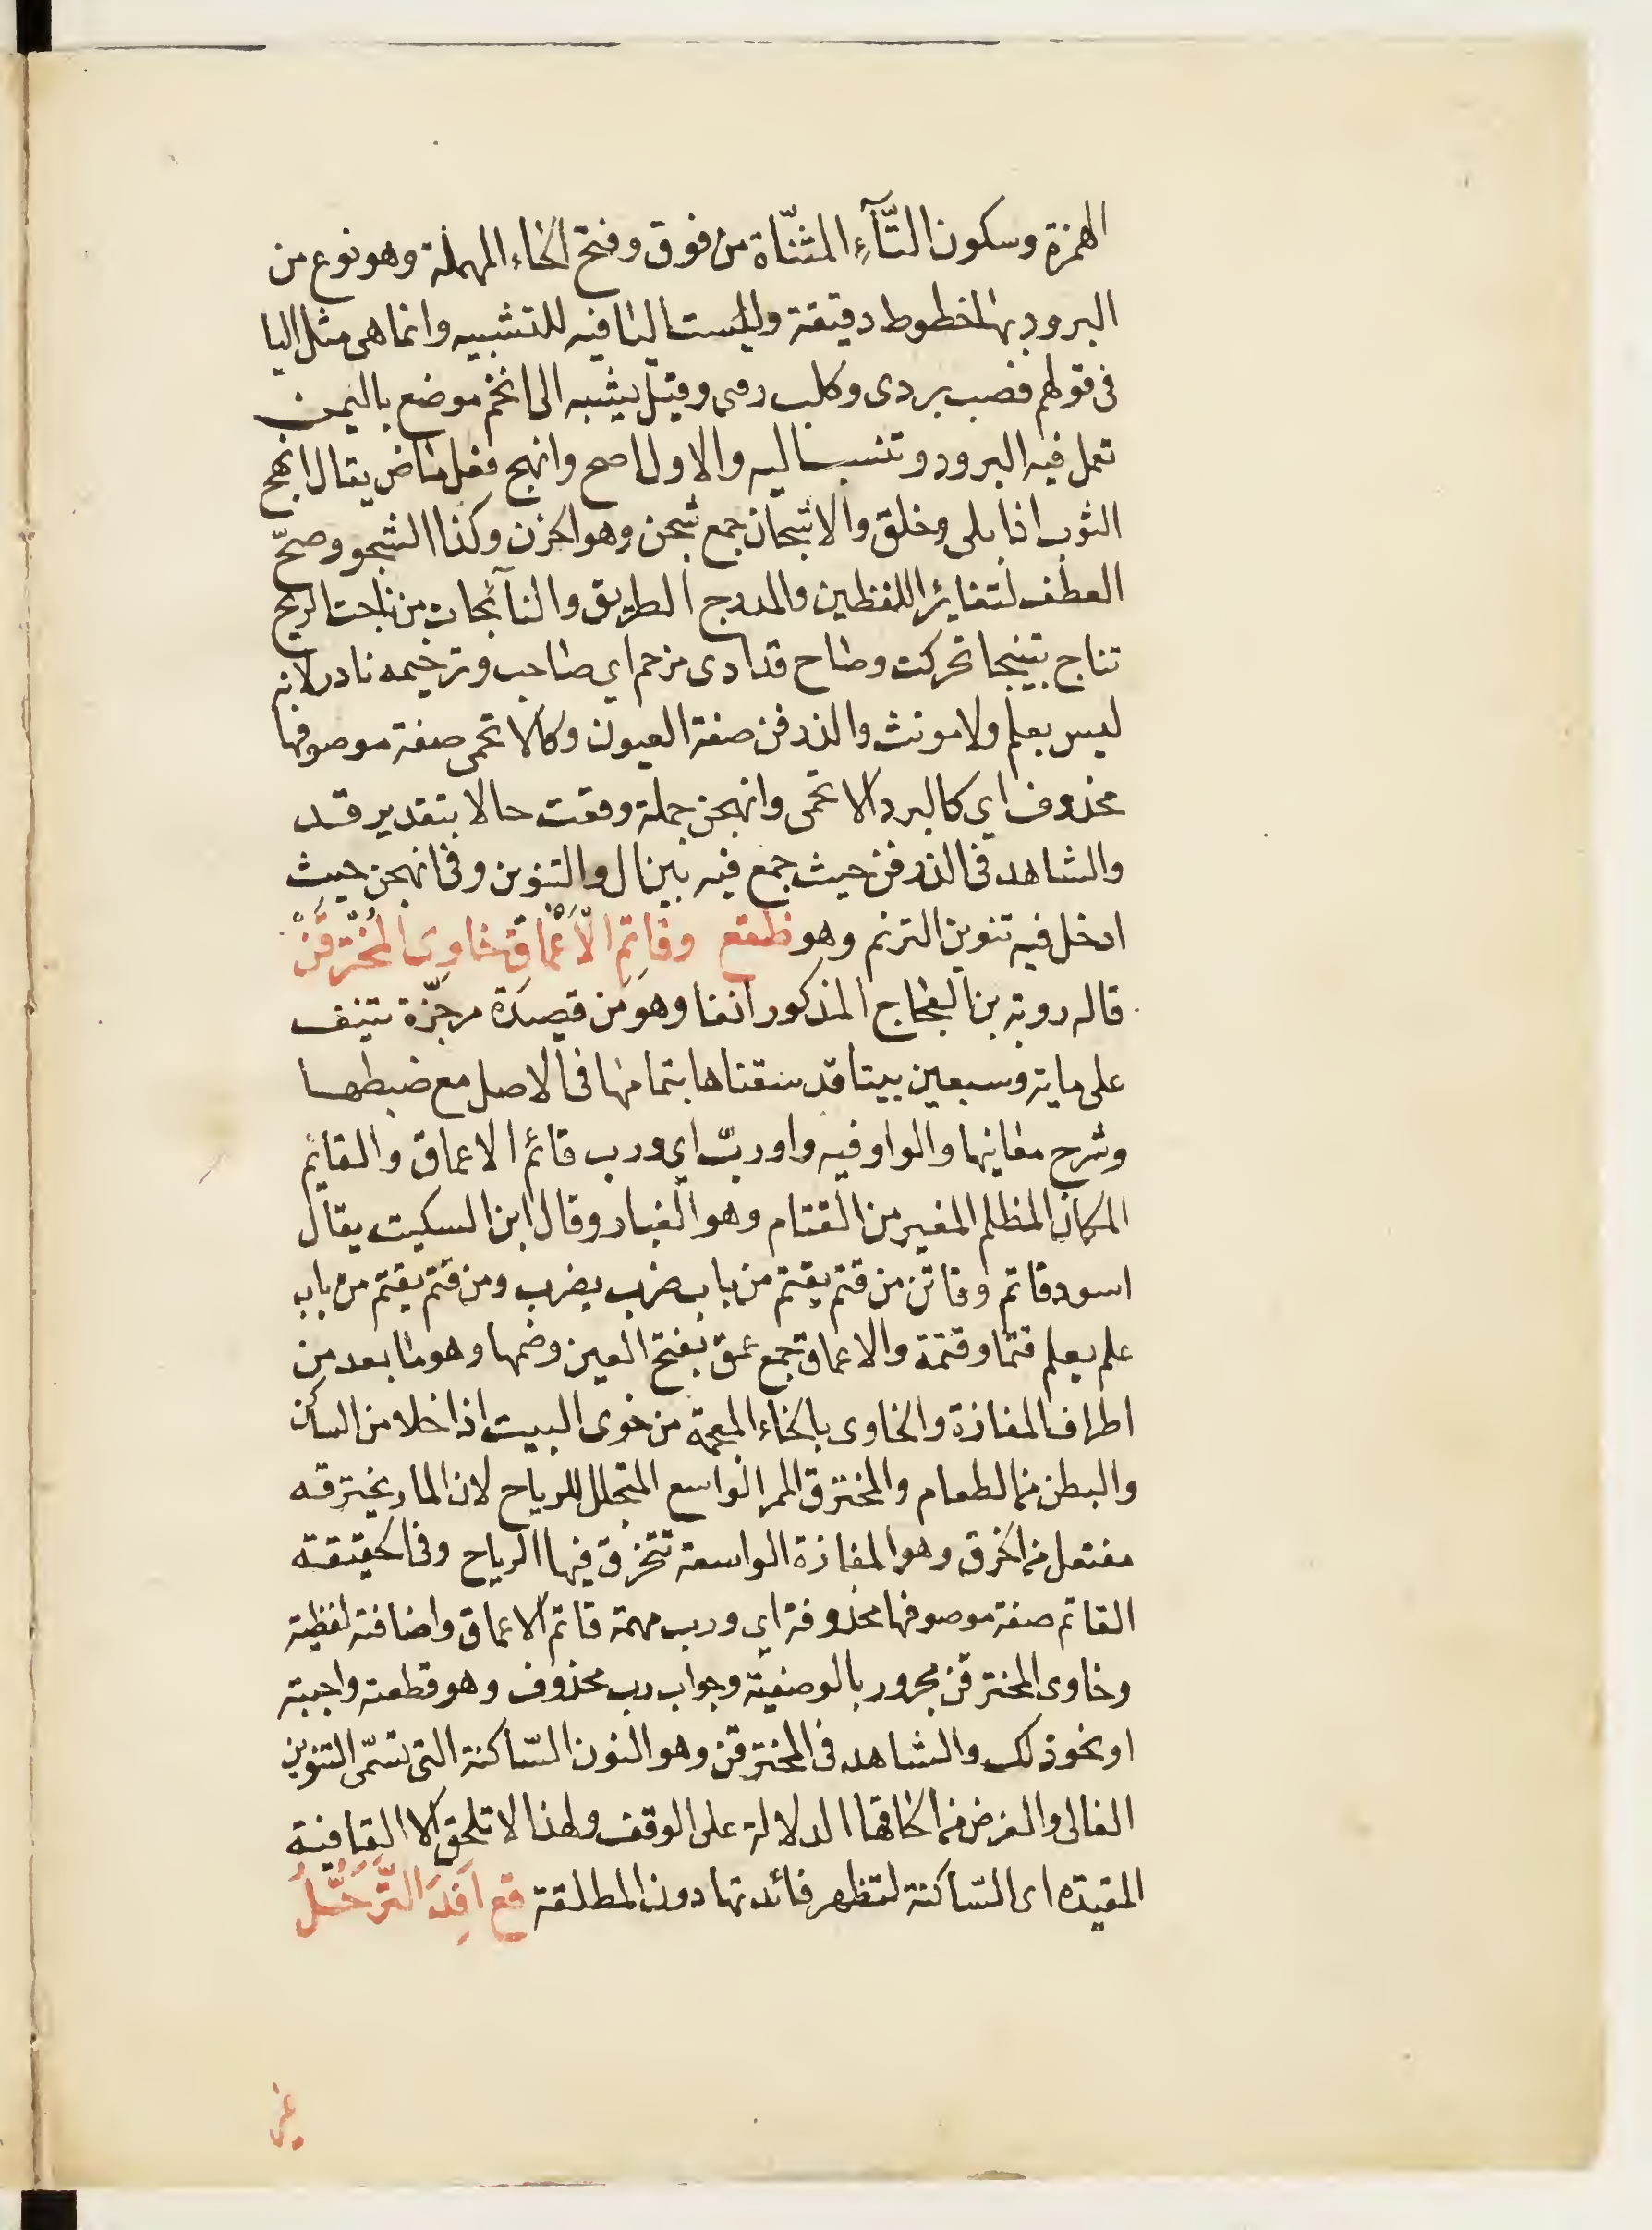 الهمزة وسكون التّآءِ المثنّاة من فوق وفتح الحاء المهملة وهو نوع من
البرود بها خطوط دقيقة وليست اليا فيه للتشبيه وانما هى مثل اليا
فى قولهم قصب بردى وكلب زفى وقيل يشبه الى اتخم موضع باليمن
تعمل فيه البرود وتنسب اليه والاول اصح وانهج فعل ماض يقال انهج
الثوب اذا بلى وخلق والاشجان جمع شجن وهو الحزن وكذا الشجو وصحّ
العطف لتغاير اللفظين والمدرج الطريق والنآئجات من نأجت الريح
تناج نئيجا تحركت وصاح قد ادى مزحم اي صاحب وترخيمه نادر لانه
ليس بعلم ولا مونث والذرفن صفة العيون وكالاتحمى صفة موصوفها
محذوف اي كالبرد الاتحمى وانهجن جملة وقعت حالا بتقدير قد
والشاهد فى الذرفن حيث جمع فيه بين ال والتنوين وفى انهجن حيث
ادخل فيه تنوين الترنم وهو ظقع وقاتِم الْأَعْمَاق خاوى المُخْتَرقَنْ
قاله روبة بن العجاج المذكور انفا وهو من قصيدة مرجّزة تنيف
على ماية وسبعين بيتا قد سقناها بتمامها فى الاصل مع ضبطها
وشرح معانيها والواو فيه واو ربّ اي ورب قائم الاعماق والقايم
المكان المظلم المغير من القتام وهو الغبار وقال ابن السكيت يقال
اسود قاتم وقاتن من قتم يقتم من باب ضرب يضرب ومن قتم يقتم من باب
علم يعلم قتما وقتمة والاعماق جمع عمق بفتح العين وضمها وهو ما بعد من
اطراف المفازة والخاوى بالخاء المعجمة من خوى البيت اذا خلا من الساكن
والبطن من الطعام والمخترق الممر الواسع المتخلل للرياح لان المار يخترقه
مفتعل من الخرق وهو المفازة الواسعة تتخرق فيها الرياح وفى الحقيقة
القاتم صفة موصوفها محذوفة اي ورب مهمة قاتم الاعماق واضافته لفظية
وخاوى المخترقن مجرور بالوصفية وجواب رب محذوف وهو قطعته واجبته
او نحو ذلك والشاهد فى المخترقن وهو النون السّاكنة التى تسمّى التنوين
الغالى والغرض من الحاقها الدلالة على الوقف ولهذا لا تلحق الا القافية
المقيدة اى السّاكنة لتظهر فائدتها دون المطلقة قع اَفِدَ التَّرَحُّلُ
غير